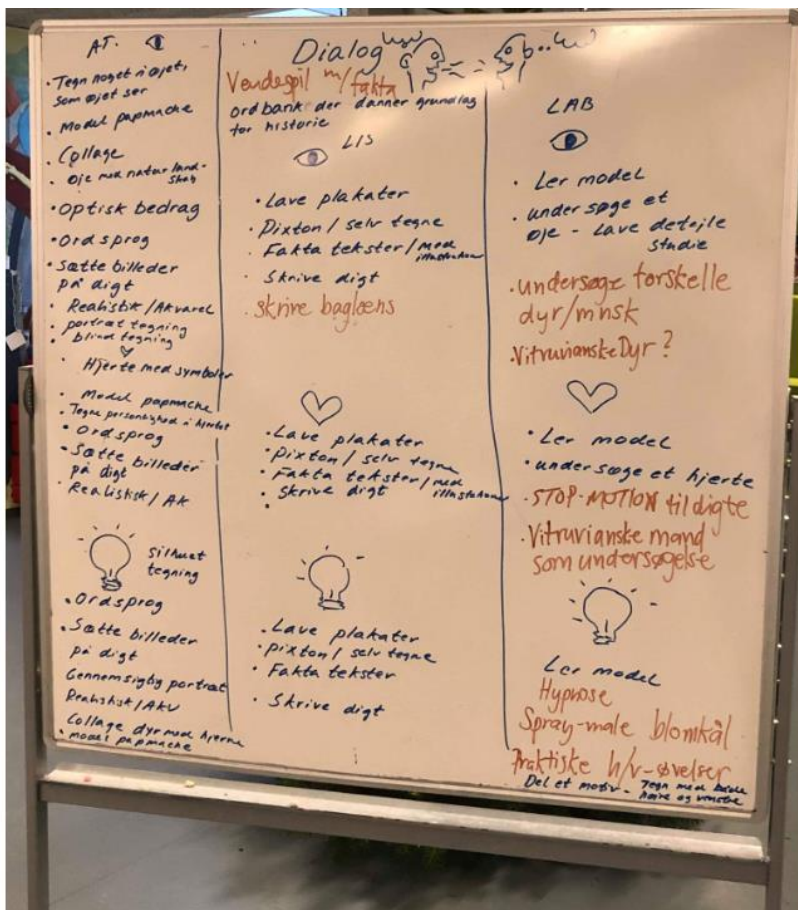 AT.
• Tegn noget i øjet,
som øjet ser
• Model papmache
• Collage
• Øje med natur land-
skab
• Optisk bedrag
• Ordsprog
• Sætte billeder
på digt
• Realistisk/Akvarel
• portræt tegning
• blind tegning
• Hjerte med symboler
• Model papmache
• Tegne personlighed i hjertet
• Ordsprog
• Sætte billeder
på digt
• Realistisk/AK
silhuet
tegning
• Ordsprog
• Sætte billeder
på digt
Gennemsigtig portræt
Realistisk/AKV
Collage dyr med hjerne
• model papmache
Dialog
Vendespil m/fakta
ordbank der danner grundlag
for historie
LIS
• Lave plakater
• Pixton/selv tegne
• Fakta tekster/med
illustrationer
• Skrive digt
• Skrive baglæns
• Lave plakater
• Pixton/selv tegne
• Fakta tekster/med
illustrationer
• Skrive digt
• Lave plakater
• Pixton/selv tegne
• Fakta tekster
• Skrive digt
LAB
• Ler model
• undersøge et
øje - Lave detejle
studie
• undersøge forskelle
dyr/mnsk
• Vitruvianske Dyr?
• Ler model
• undersøge et hjerte
• STOP-MOTION til digte
• Vitruvianske mand
som undersøgelse
Ler model
Hypnose
Spray-male blomkål
Praktiske h/v-søvelser
Del et motiv - Tegn med både
højre og venstre